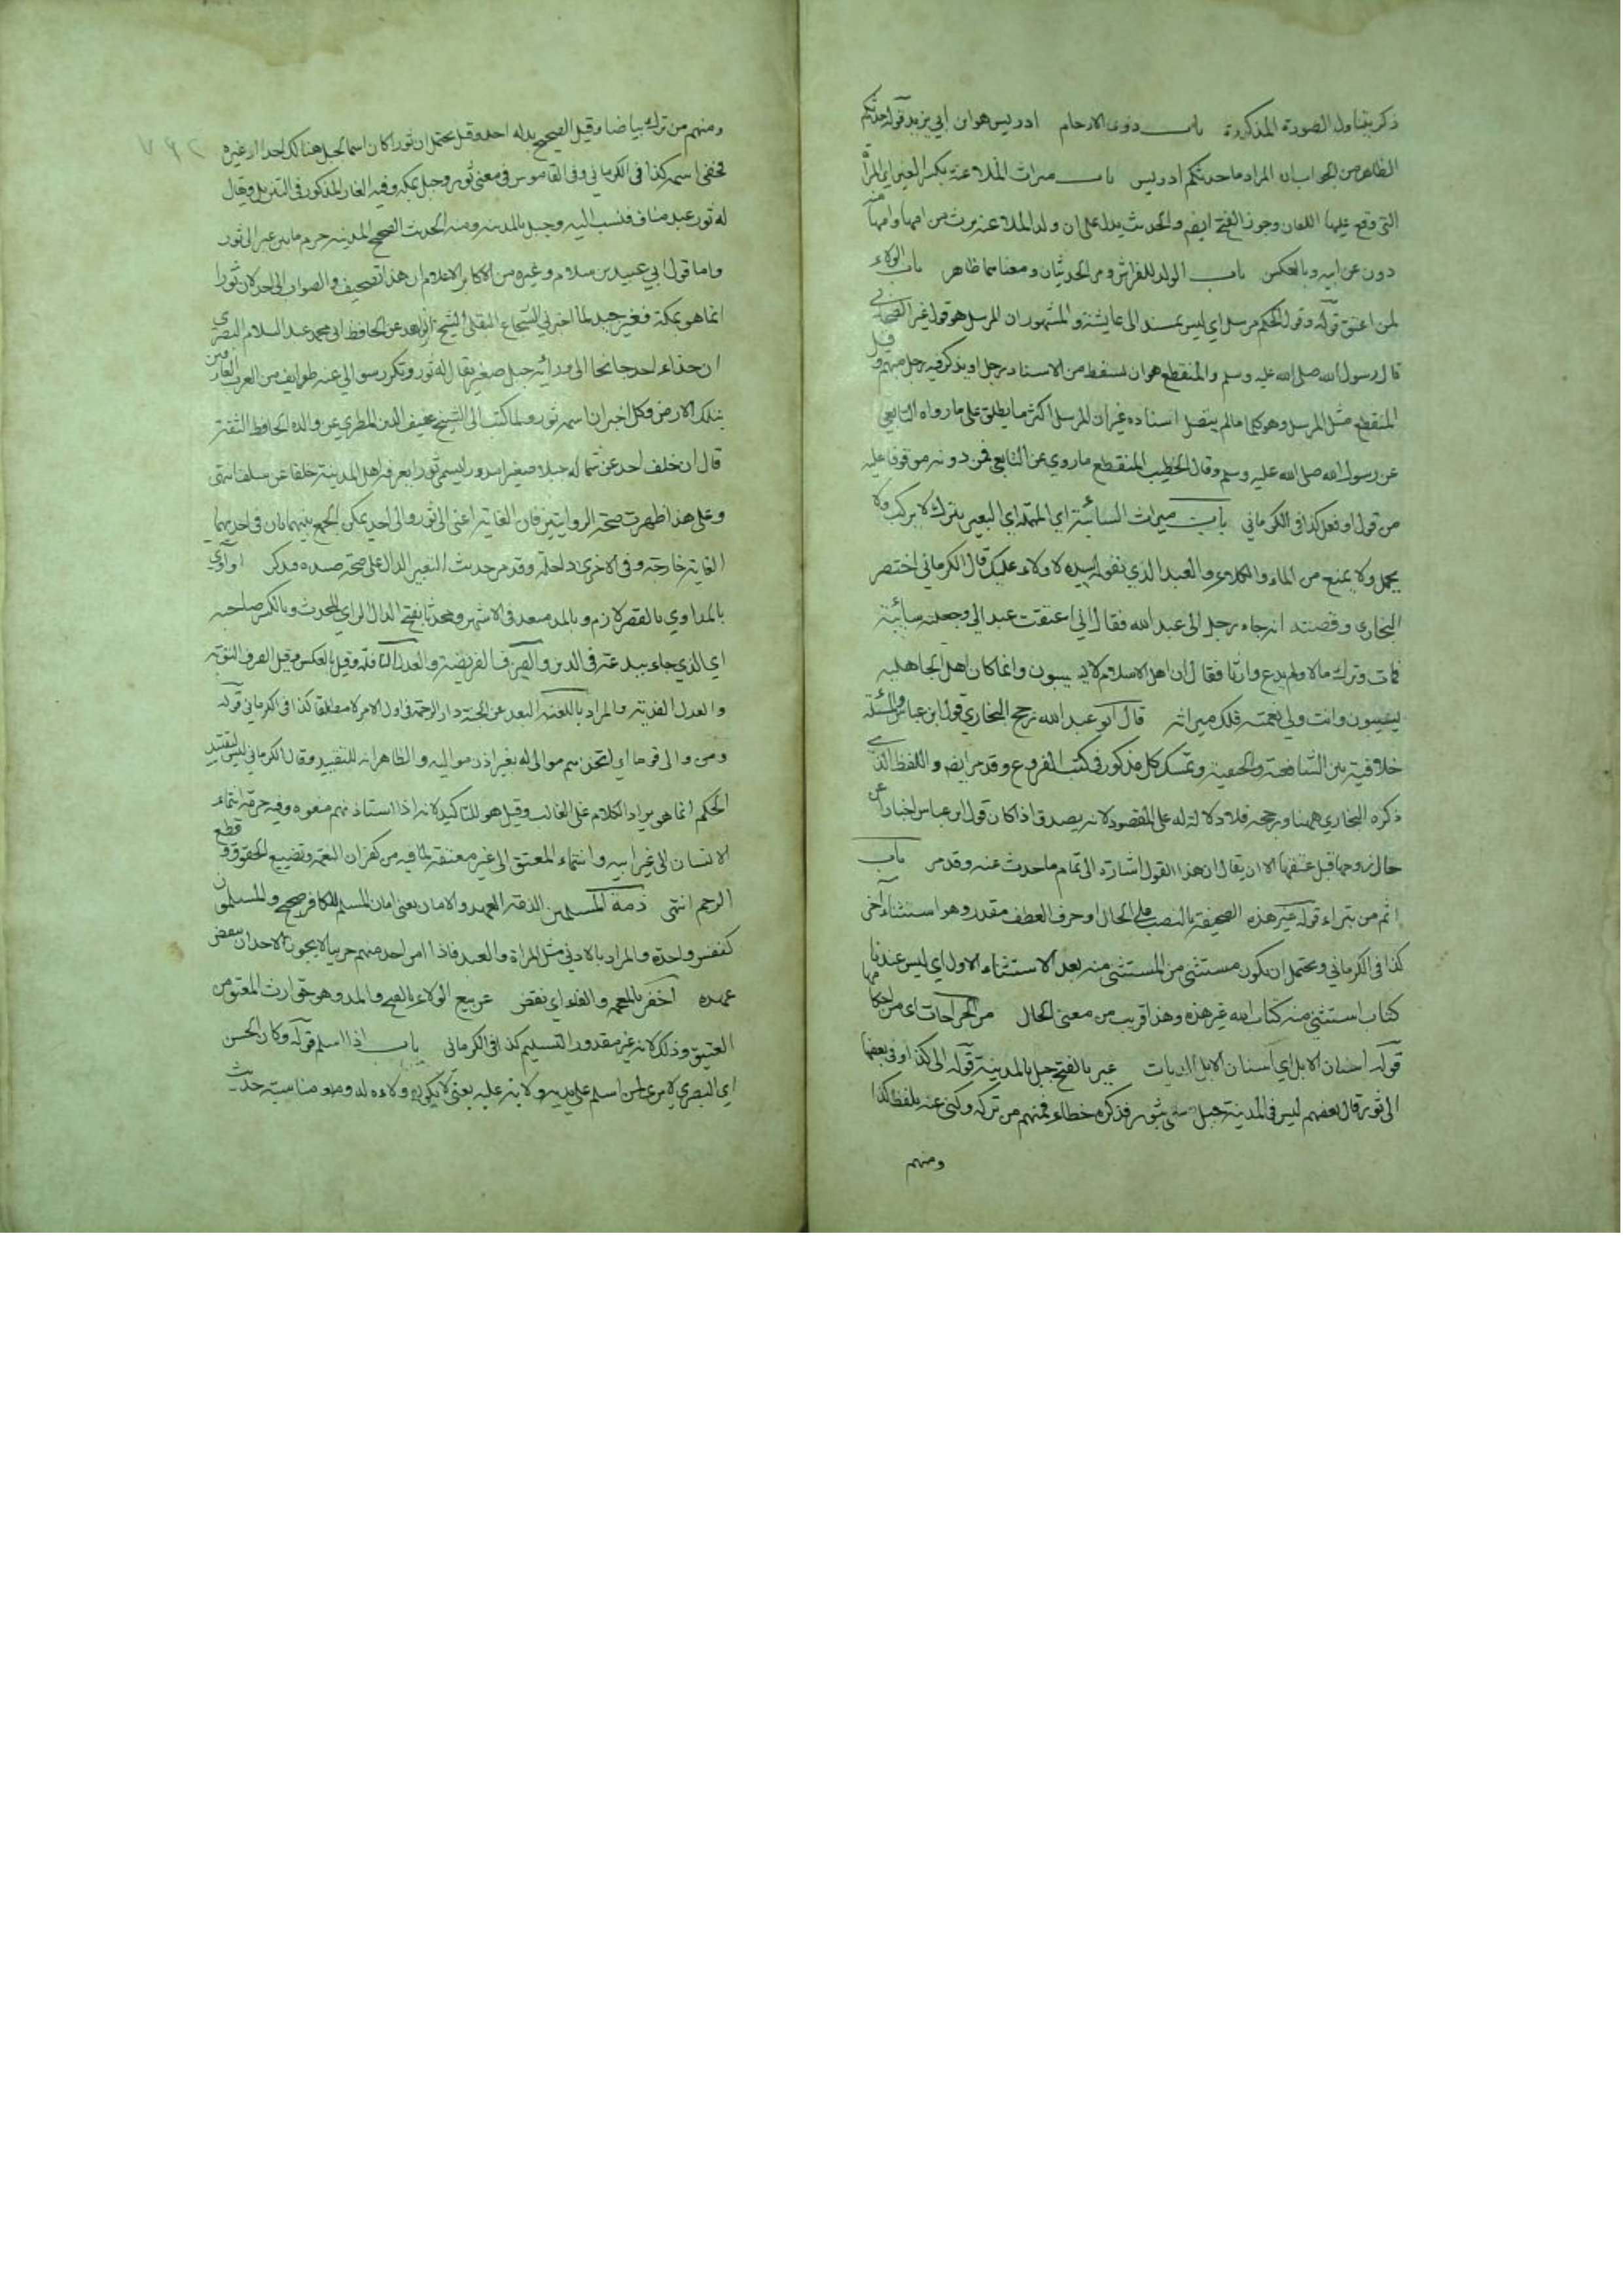 ذكر يتناول الصورة المذكورة باب ذوى الارحام ادريس هو ابن أبي يزيد قوله حدثكم
الظاهر من الجواب ان المراد ما حدثكم ادريس باب ميراث الملاعنة بكسر العين اي المرأة
التي وقع عليها اللعان وجوز الفتح ايضا والحديث يدل على ان ولد الملاعنة يرث من امها وامها منه
دون عن ابيه وبالعكس باب الولد للفراش ومر الحديثان ومعناهما ظاهر باب الولاء
لمن اعتق قوله وقول الحكم مرسل اي ليس بمسند الى عايشة والمشهور ان المرسل هو قول غير الصحابي
قال رسول الله صلى الله عليه وسلم والمنقطع هو ان يسقط من الاسناد رجل او يذكر فيه رجل مبهم وقيل
المنقطع مثل المرسل وهو كلما لم يتصل اسناده غير ان المرسل اكثر ما يطلق على ما رواه التابعي
عن رسول الله صلى الله عليه وسلم وقال الخطيب المنقطع ما روي عن التابعي فمن دونه موقوفا عليه
من قول او فعل كذا في الكرماني باب ميراث السائبة اي المهملة اي البعير يترك لا يركب ولا
يحمل ولا يمنع من الماء والكلاء والعبد الذي يقول سيده لا ولاء عليك قال الكرماني اختصر
البخاري وقصته انه جاء رجل الى عبد الله فقال اني اعتقت عبدا لي وجعلته سائبة
فمات وترك مالا ولم يدع وارثا فقال ان اهل الاسلام لا يسيبون وانما كان اهل الجاهلية
يسيبون وانت ولي نعمته فلك ميراثه قال ابو عبد الله رجح البخاري قول ابن عباس والمسئلة
خلافية بين الشافعية والحنفية وتمسك كل مذكور في كتب الفروع وقد مر ايضا واللفظ الذي
ذكره البخاري ههنا ورجحه فلا دلالة له على المقصود لانه يصدق اذا كان قول ابن عباس اخبارا عن
حال زوجها قبل عتقها الا ان يقال ان هذا القول اشارة الى تمام ما حدث عنه وقد مر باب
اثم من تبراء قوله غير هذه الصحيفة بالنصب على الحال او حرف العطف مقدر وهو استثناء آخر
كذا في الكرماني ويحتمل ان يكون مستثنى من المستثنى منه بعد الاستثناء الاول اي ليس عندنا
كتاب استثني منه كتاب الله غير هذه وهذا قريب من معنى الحال من الجراحات اي من احكامها
قوله اسنان الابل اي اسنان الابل الديات عير بالفتح جبل بالمدينة قوله الى كذا وفي بعضها
الى ثور قال بعضهم ليس في المدينة جبل سمى بثور فذكره خطاء فمنهم من تركه وكنى عنه بلفظ كذا
ومنهم
ومنهم من تركه بياضا وقيل الصحيح بدله احد وقيل يحتمل ان ثورا كان اسما لجبل هنالك احدا او غيره
فخفي اسمه كذا في الكرماني وفي القاموس في معنى ثور وجبل بمكة وفيه الغار المذكور في التنزيل ويقال
له ثور عبد مناف فنسب اليه وجبل بالمدينة ومنه الحديث الصحيح المدينة حرم ما بين عير الى ثور
واما قول ابي عبيد بن سلام وغيره من الاكابر الاعلام ان هذا تصحيف والصواب الى احد لان ثورا
انما هو بمكة فغير جيد لما اخبرني الشجاع البقلي الشيخ الزاهد عن الحافظ ابي محمد عبد السلام البصري
ان حذاء احد جانحا الى ورائه جبل صغير يقال له ثور وتكرر سوالي عنه طوايف من العرب العارفين
بتلك الارض وكل اخبر ان اسمه ثور ولما كتب الى الشيخ عفيف الدين المطري عن والده الحافظ الثقة
قال ان خلف احد عن شماله جبلا صغيرا مدورا يسمى ثورا يعرفه اهل المدينة خلفا عن سلف انتهى
وعلى هذا ظهرت صحة الروايتين فان الغاية اعنى الى ثور والى احد يمكن الجمع بينهما بان في احديهما
الغاية خارجة وفي الاخرى داخلة وقد مر حديث النغير الدال على صحة صيده فتذكر او آوى
بالمد اوي بالقصر لازم وبالمد متعد في الاشهر ومحدثا بفتح الدال الراي المحدث وبالكسر صاحبه
اي الذي جاء ببدعة في الدين والصرف الفريضة والعدل النافلة وقيل بالعكس وقيل الصرف التوبة
والعدل الفدية والمراد باللعنة البعد عن الجنة دار الرحمة في اول الامر لا مطلقا كذا في الكرماني قوله
ومن والى قوما اي اتخذهم موالى له بغير اذن مواليه والظاهر انه للتقييد وقال الكرماني ليس لتقييد
الحكم انما هو ايراد الكلام على الغالب وقيل هو للتاكيد لانه اذا استاذنهم منعوه وفيه حرمة انتماء
الانسان الى غير ابيه وانتماء المعتق الى غير معتقه لما فيه من كفران النعمة وتضييع الحقوق وقطع
الرحم انتهى ذمة المسلمين الذمة العهد والامان يعنى امان المسلم للكافر صحيح والمسلمون
كنفس واحدة والمراد بالادنى مثل المراة والعبد فاذا امن احد منهم حربيا لا يجوز لاحد ان ينقض
عهده اخفر بالمعجمة والفاء اي نقض عن بيع الولاء بالفتح والمد وهو حق ارث المعتق من
العتيق وذلك لانه غير مقدور التسليم كذا في الكرماني باب اذا اسلم قوله وكان الحسن
اي البصري لا يرى لمن اسلم على يديه ولاية عليه يعنى لا يكون ولاءه له ومناسبة حديث